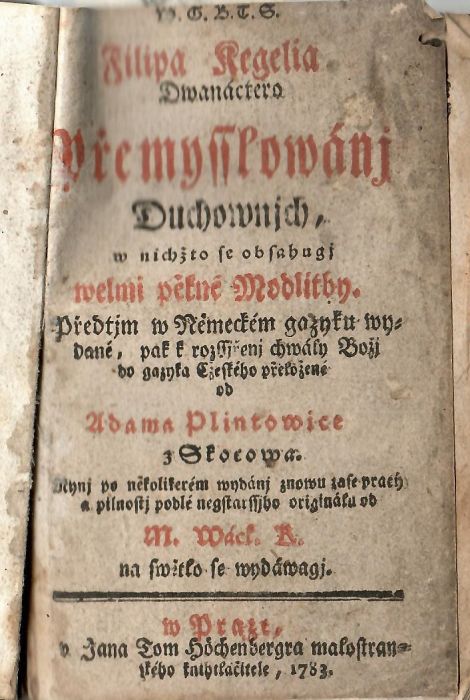 B. G. B. T. S.
Filipa Kegelia
Dwanáctero
Přemysslowánj
Duchownjch,
w nichžto se obsahugj
welmi pěkné Modlitby.
Předtjm w Německém gazyku wy-
dané, pak k rozssjřenj chwály Božj
do gazyka Cžeského přeložené
od
Adama Plintowice
z Skocowa.
Nynj po několikerém wydánj znowu zase pracý
a pilnostj podlé negstarssjho originálu od
M. Wácl. K.
na swětlo se wydáwagj.
w Praze,
v Jana Tom Höchenbergra malostran-
ského knihtlačitele, 1783.